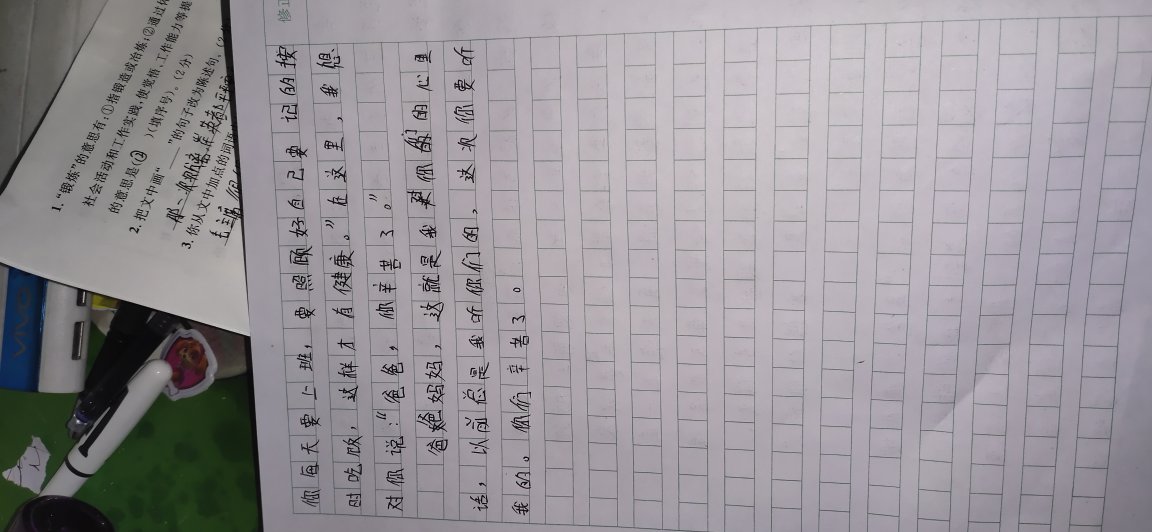 1. “锻炼”的意思有:①指锻造或冶炼;②通过体
社会活动和工作实践,使觉悟、工作能力等提
的意思是(②)(填序号)。(2分)
2. 把文中画“——”的句子改为陈述句。(2分)
3. 你从文中加点的词语
修正
你每天要上班,要照顾好自己要记的按
时吃饭,这样才有健康。”在这里,我想
对你说:“爸爸,你辛苦了。”
爸爸妈妈,这就是我对你们的心里
话,以前总是我听你们的,这次你要听
我的。你们辛苦了。
VIVO